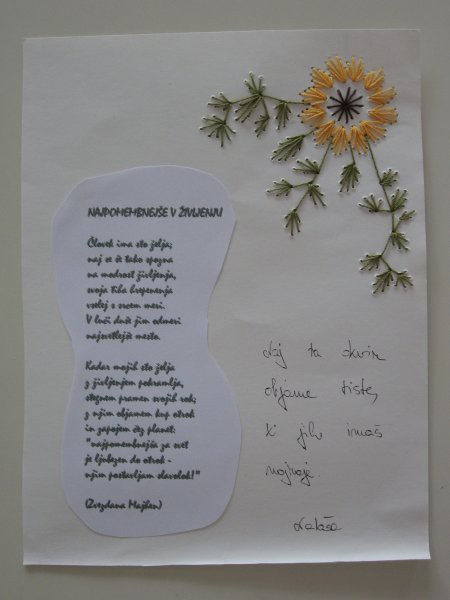 NAJPOMEMBNEJŠE V ŽIVLJENJU
Človek ima sto želja;
naj se še tako spozna
na modrost življenja,
svoja tiha hrepenenja
vselej s srcem meri.
V luči duše jim odmeri
najsvetlejše mesto.
Kadar mojih sto želja
z življenjem pokramlja,
stegnem pramen svojih rok;
z njim objamem kup otrok
in zapojem čez planet:
"najpomembnejša za svet
je ljubezen do otrok -
njim postavljam slavolok!"
(Zvezdana Majhen)
Naj ta okvir
objame tiste,
ki jih imaš
najraje.
Nataša